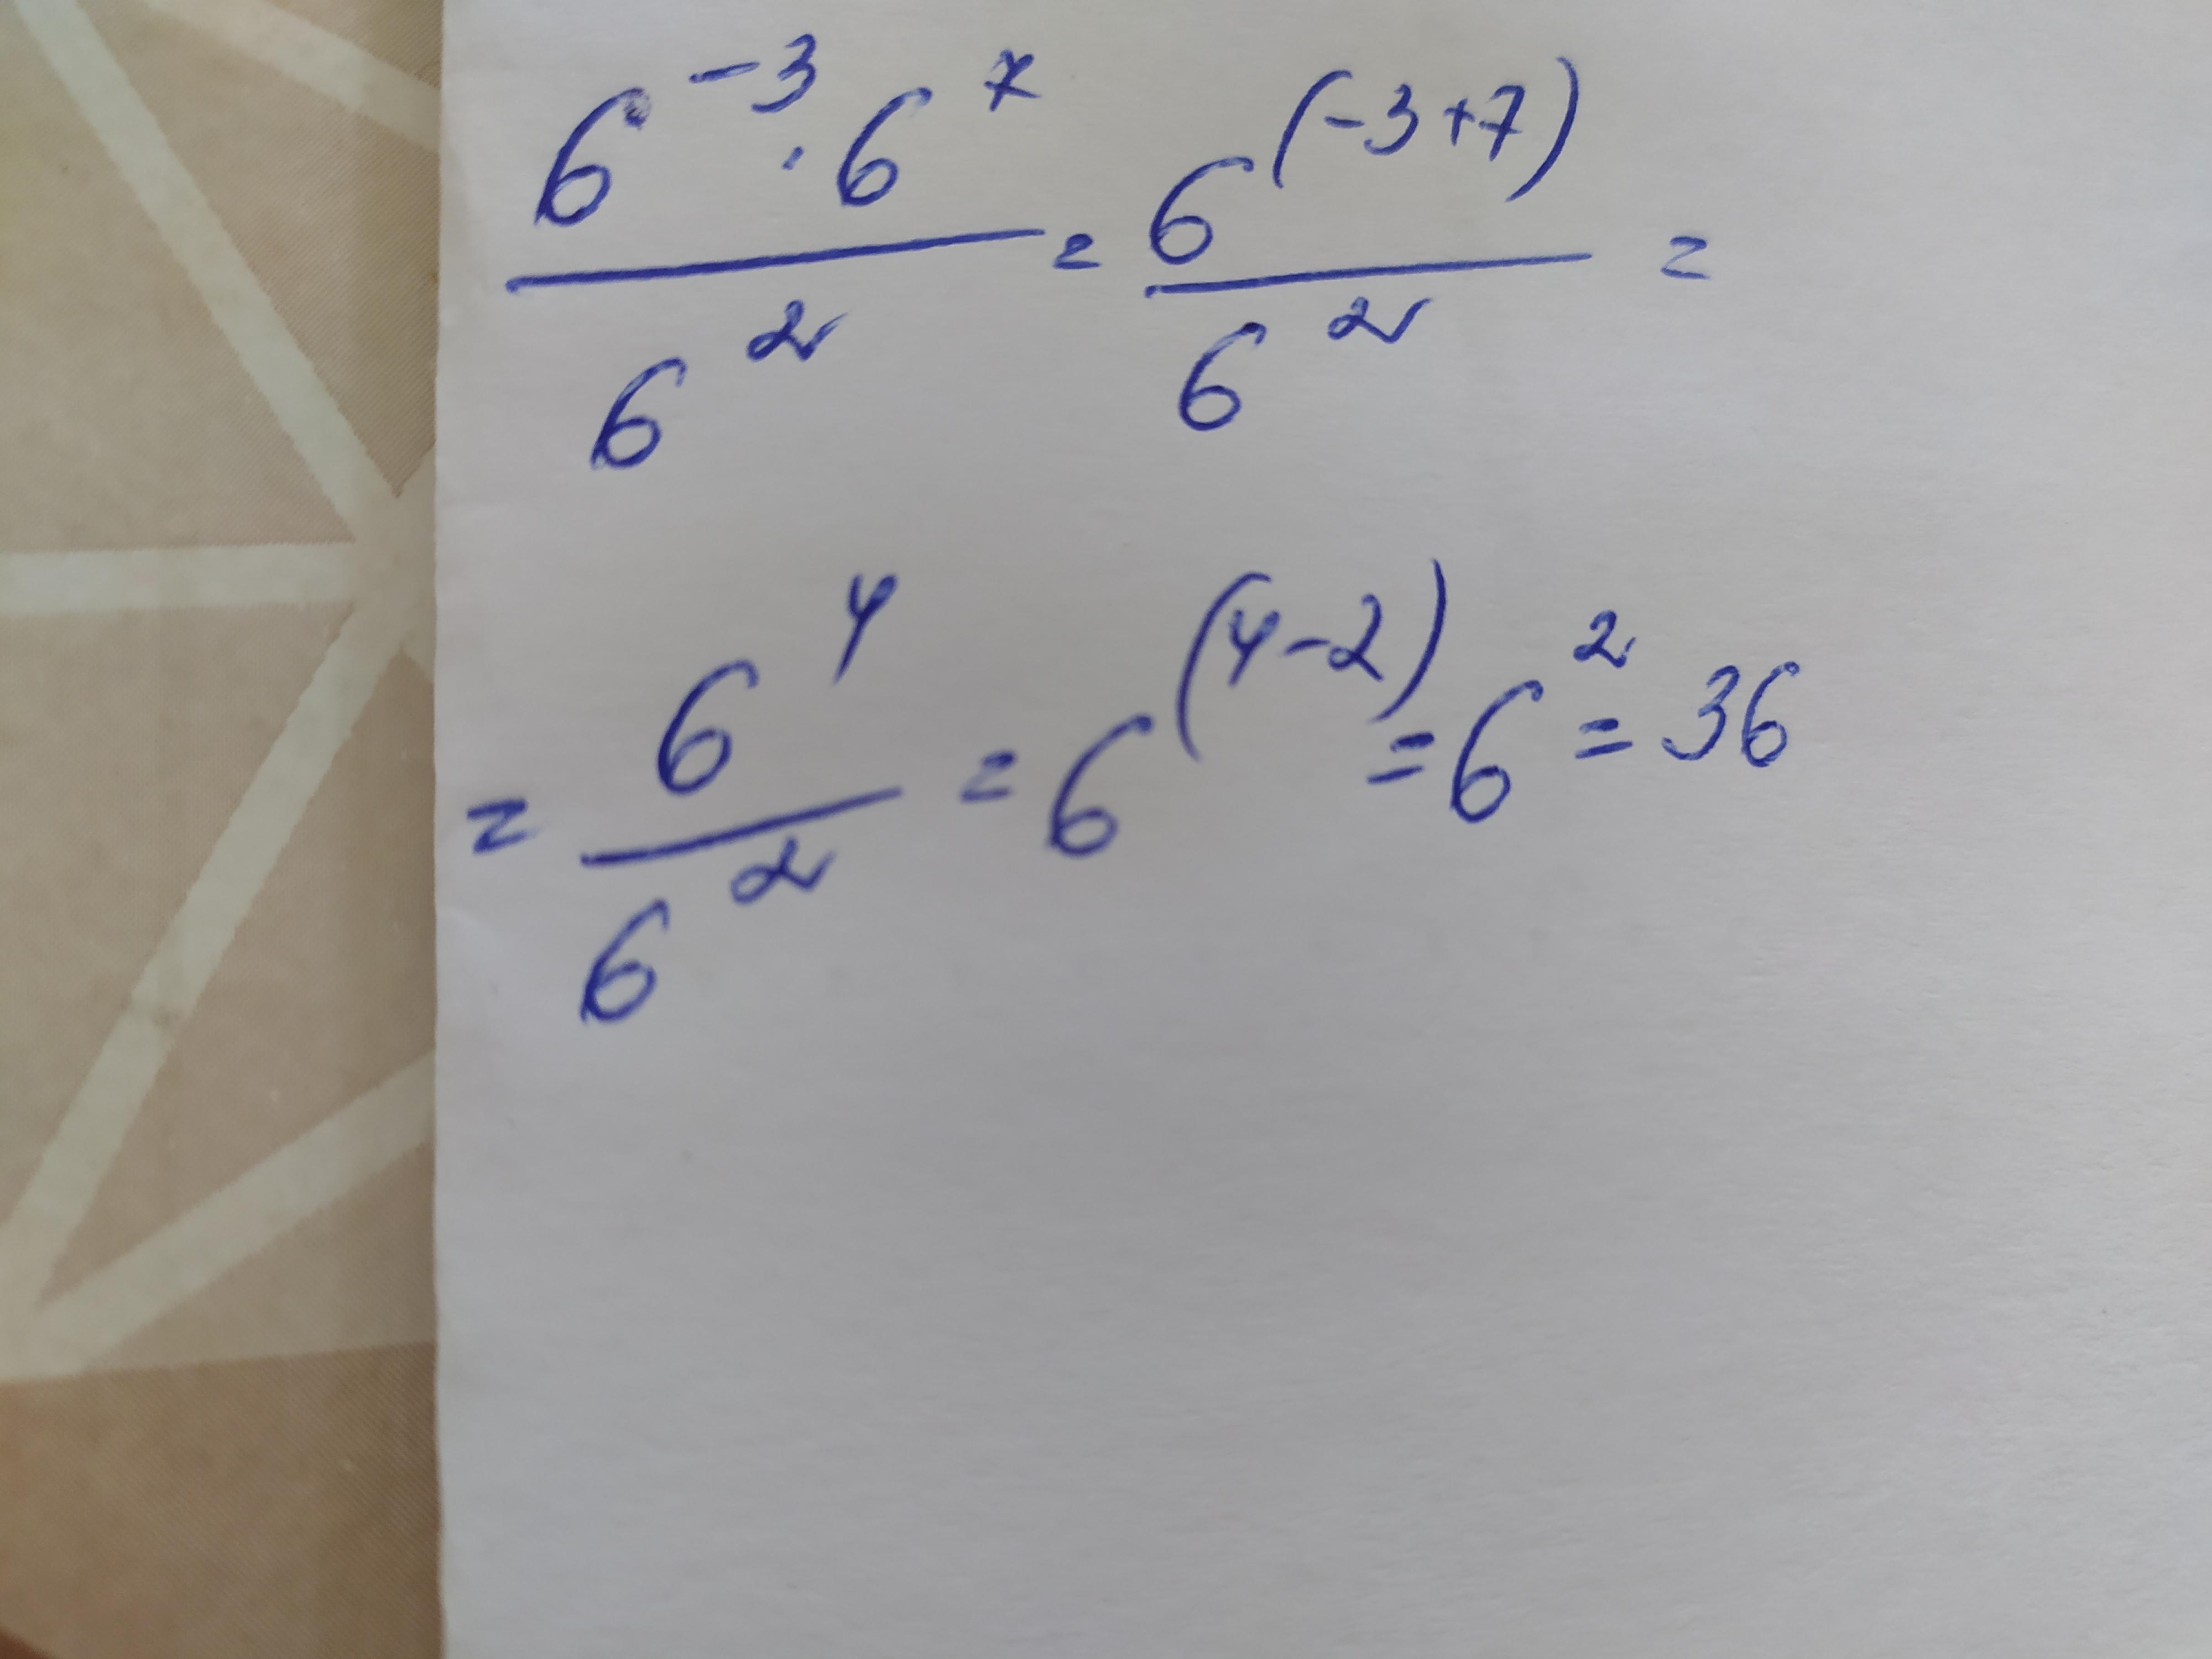 6^{-3} · 6^{7} / 6^{2} = 6^{(-3+7)} / 6^{2} =
= 6^{4} / 6^{2} = 6^{(4-2)} = 6^{2} = 36